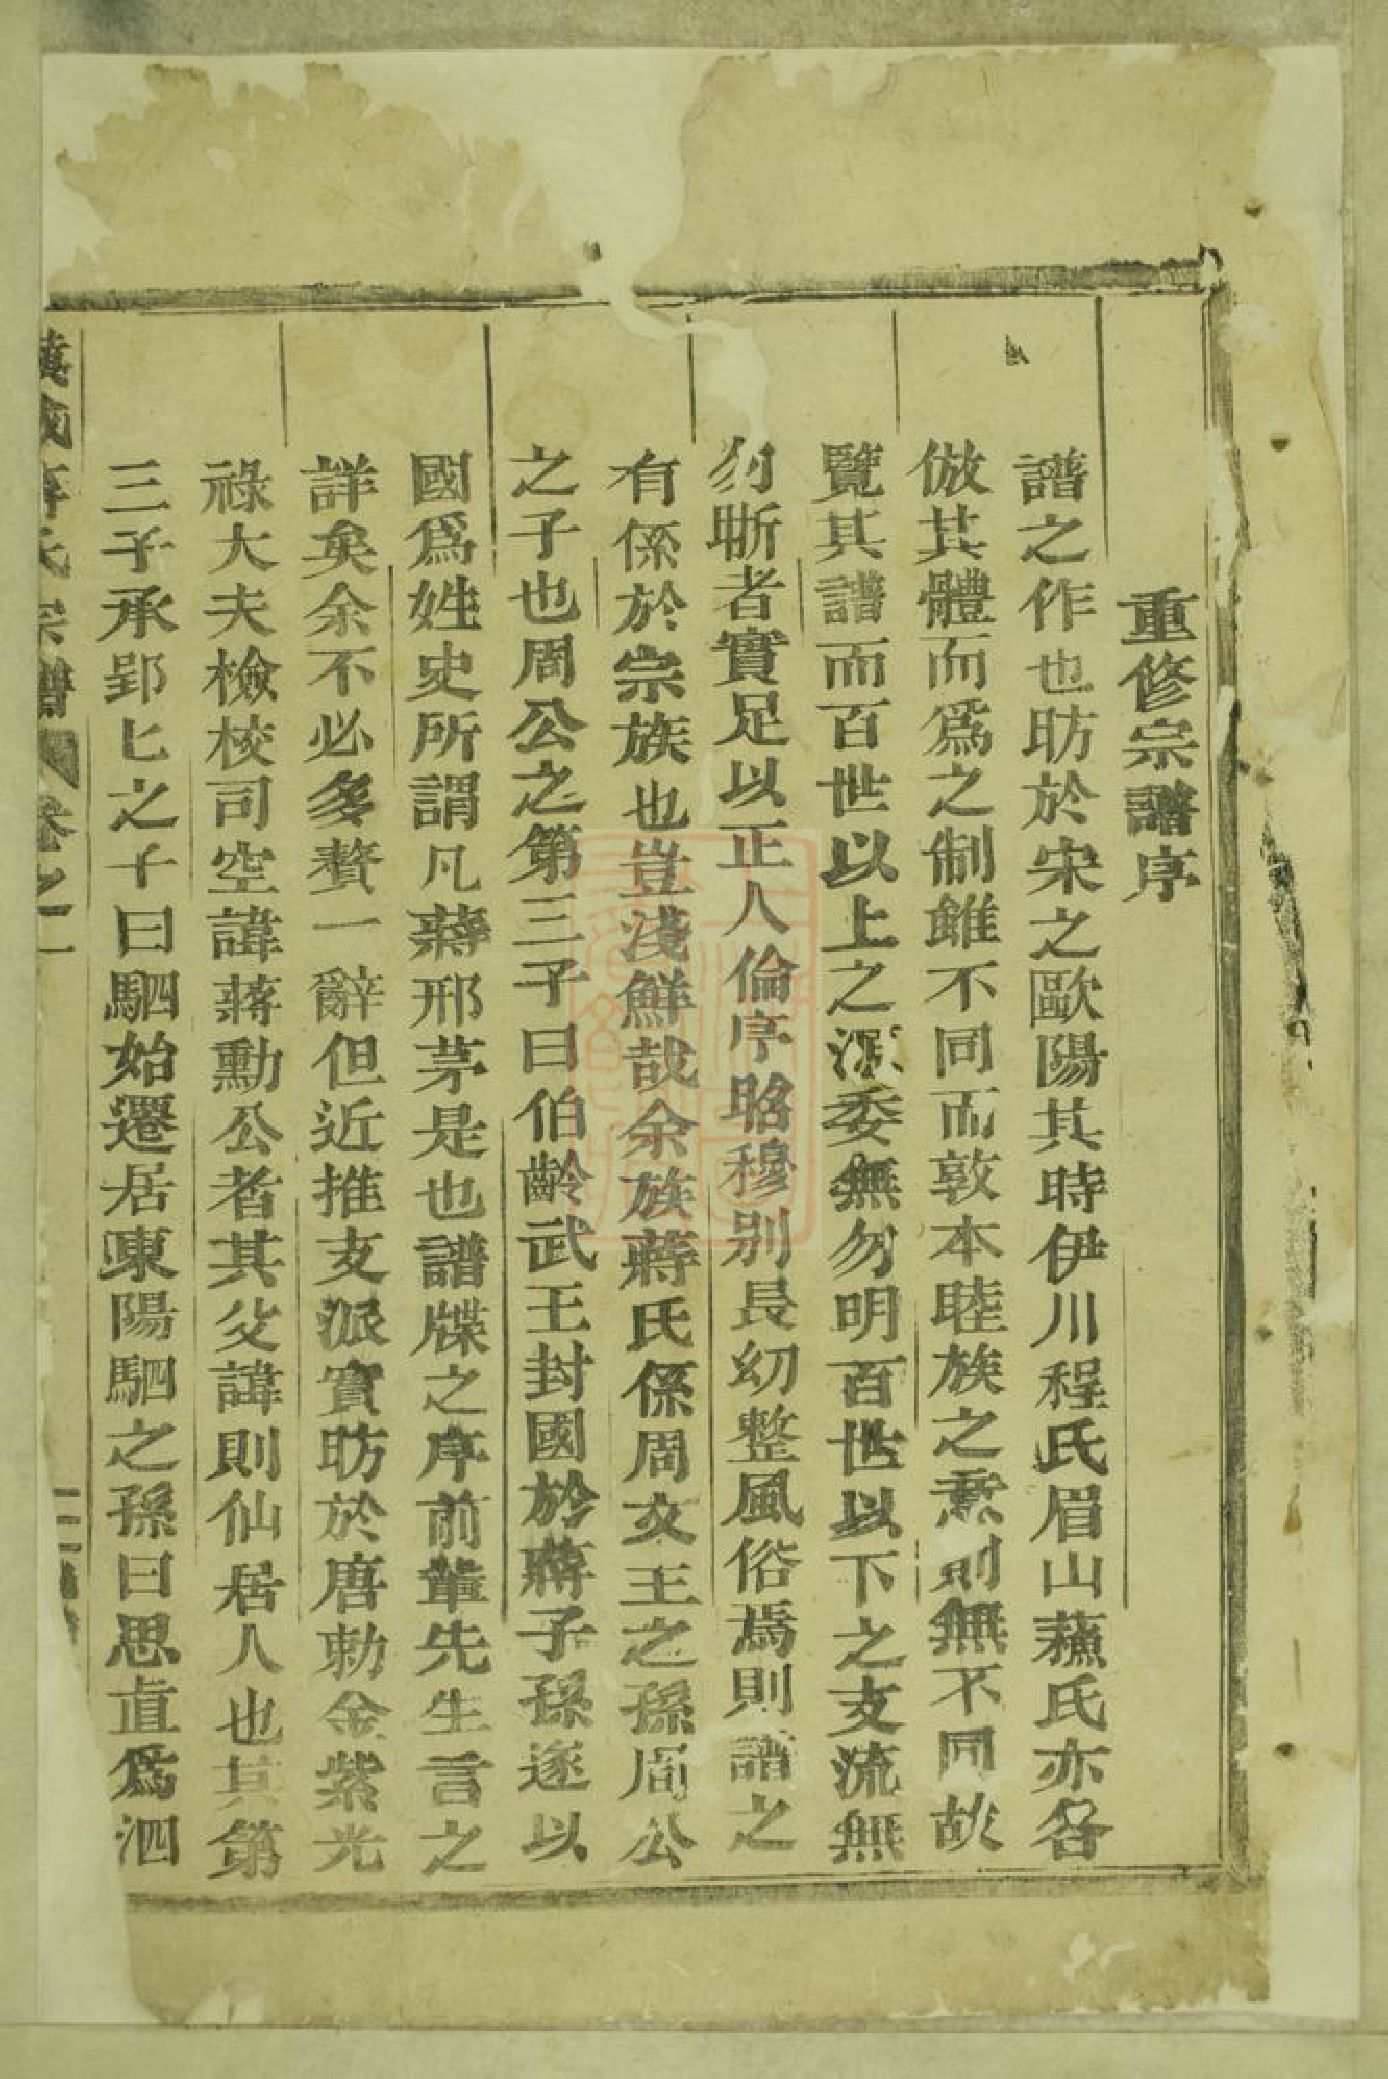 重修宗譜序
譜之作也昉於宋之歐陽其時伊川程氏眉山蘇氏亦各
倣其體而爲之制雖不同而敦本睦族之意則無不同故
覽其譜而百世以上之源委無勿明百世以下之支流無
勿晰者實足以正人倫序昭穆別長幼整風俗焉則譜之
有係於宗族也豈淺鮮哉余族蔣氏係周文王之孫周公
之子也周公之第三子曰伯齡武王封國於蔣子孫遂以
國爲姓史所謂凡蔣邢茅是也譜牒之序前輩先生言之
詳矣余不必多贅一辭但近推支派實昉於唐勅金紫光
祿大夫檢校司空諱蔣勳公者其父諱則仙居人也其第
三子承郢匕之子曰駟始遷居東陽駟之孫曰思直爲泗
氏宗譜 卷之一